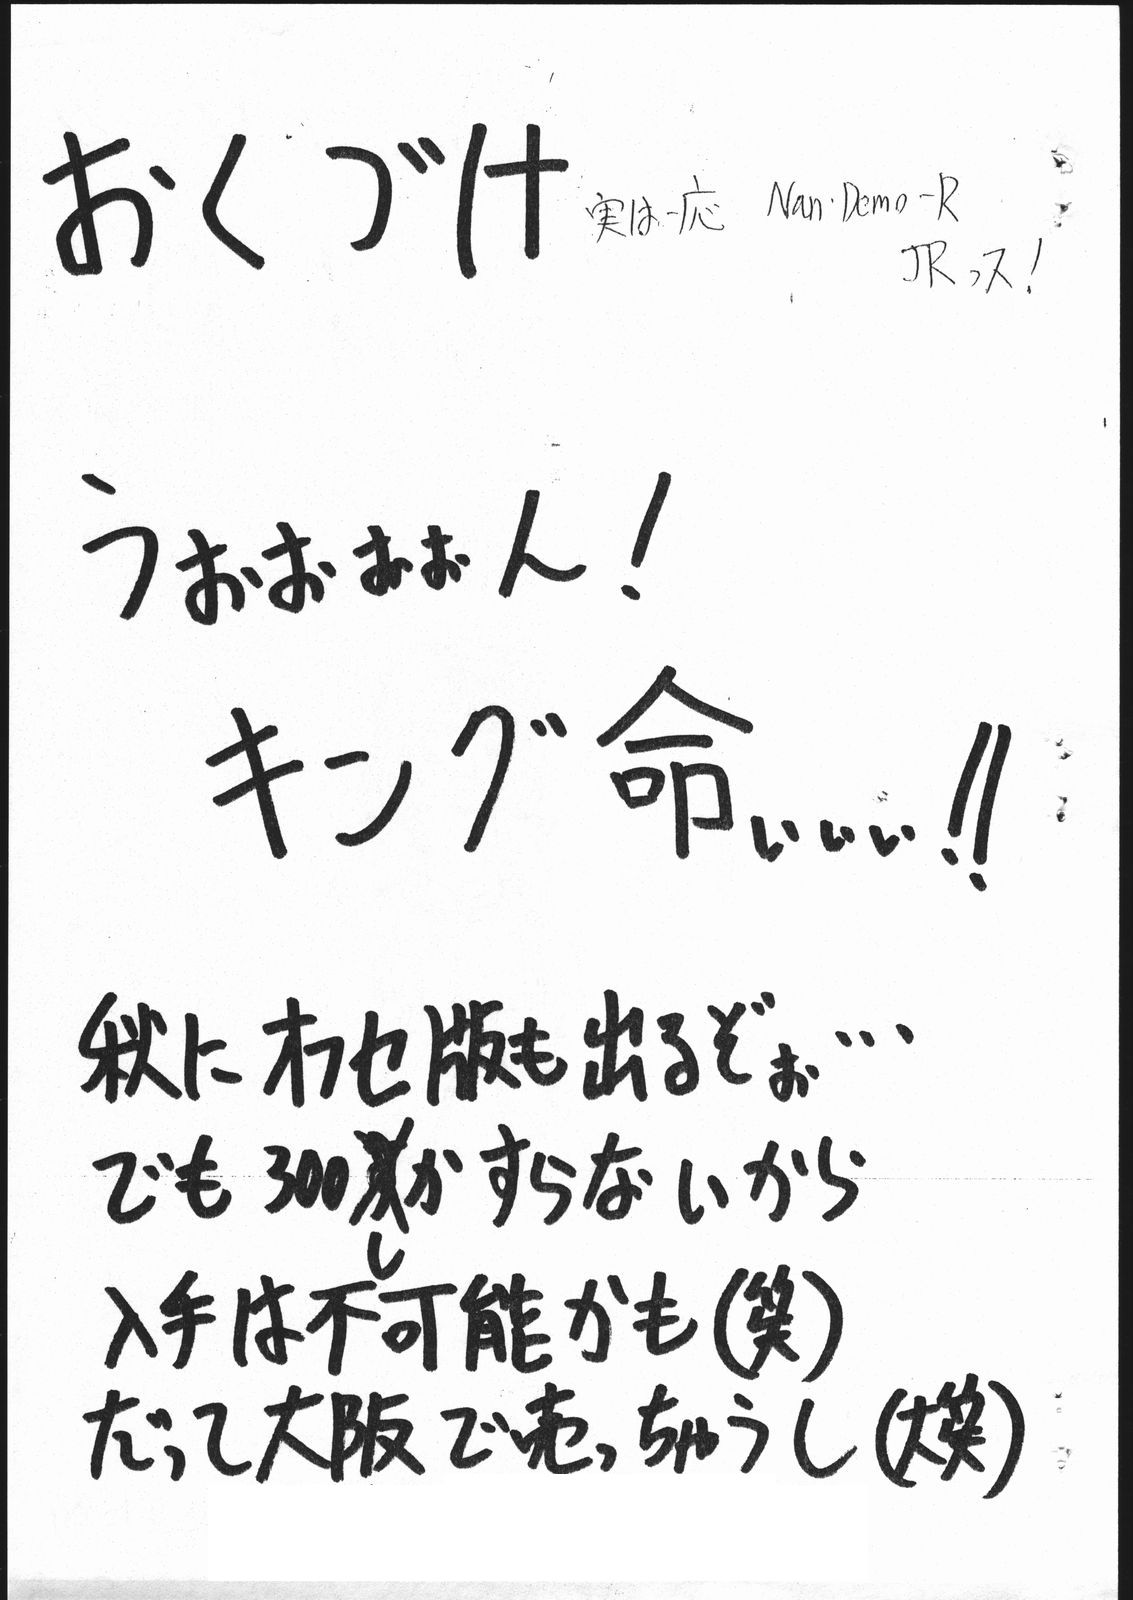 おくづけ 実は一応 Nan・Demo-R
JRっス!
うぉおぉぉん!
キング命ぃぃぃ!!
秋にオフセ版も出るぞぉ…
でも300しかすらないから
入手は不可能かも(笑)
だって大阪で売っちゃうし(大笑)